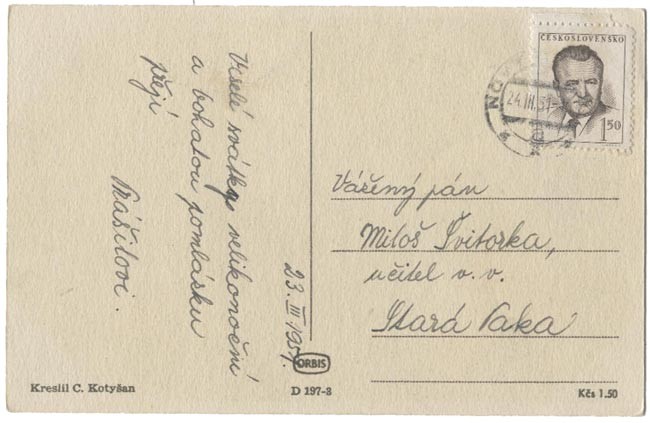 Veselé svátky velikonoční
a bohatou pomlásku
přejí
Prášilovi.
23. III 1951.
ČESKOSLOVENSKO
1 50
24.III.51
Vážený pán
Miloš Svitorka,
učitel v. v.
Stará Paka
Kreslil C. Kotyšan
ORBIS
D 197-3
Kčs 1.50